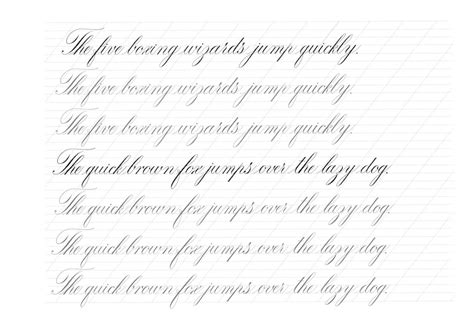 The five boxing wizards jump quickly.
The five boxing wizards jump quickly.
The five boxing wizards jump quickly.
The quick brown fox jumps over the lazy dog.
The quick brown fox jumps over the lazy dog.
The quick brown fox jumps over the lazy dog.
The quick brown fox jumps over the lazy dog.